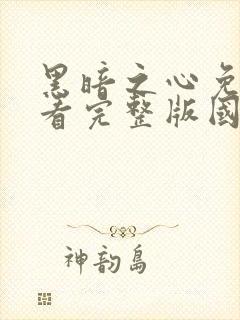 黑暗之心免
看完整版國
神韵岛